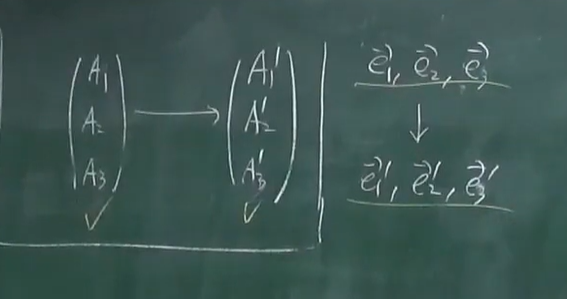 (A₁ A₂ A₃) → (A₁′ A₂′ A₃′)
✓ ✓
e⃗₁, e⃗₂, e⃗₃
↓
e⃗₁′, e⃗₂′, e⃗₃′